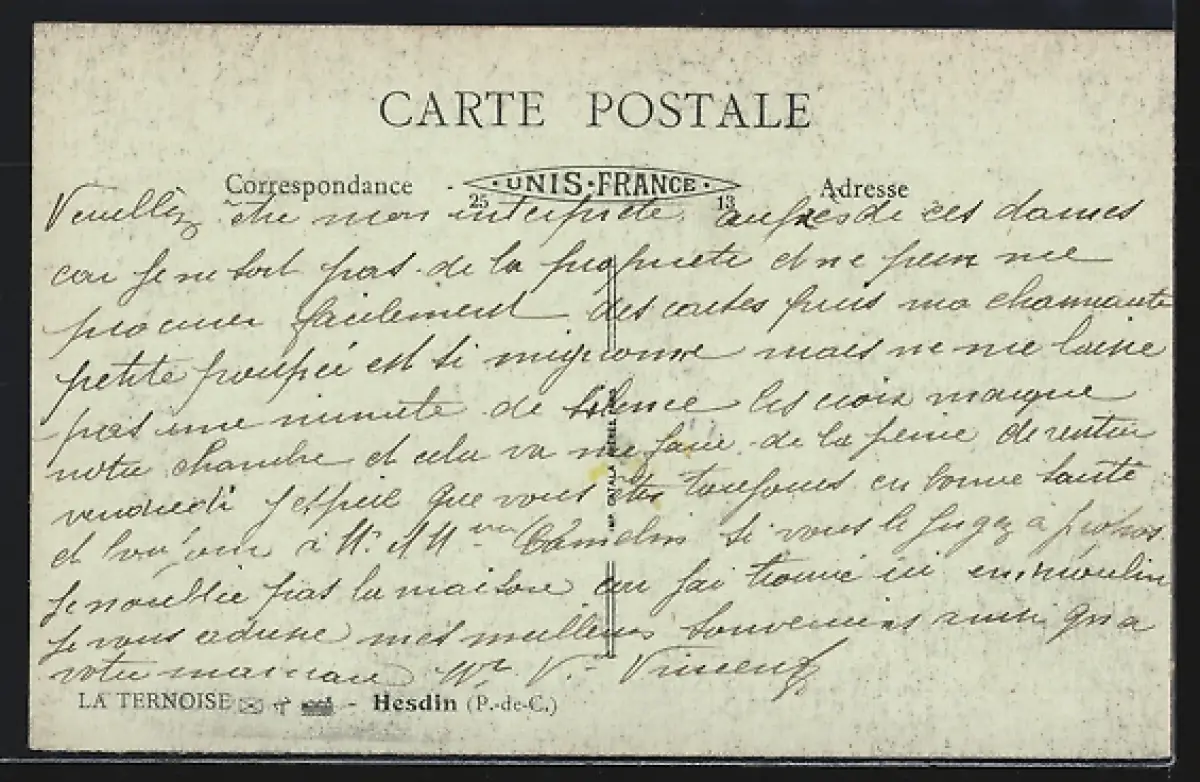 CARTE POSTALE
Correspondance
UNIS-FRANCE
25 13
Adresse
Veuillez être mon interprete auprès de ces dames
car je ne sort pas de la propriete et ne peux me
procurer facilement des cartes puis ma charmante
petite poupée est si mignonne mais ne me laisse
pas une minute de silence les croix marque
notre chambre et cela va me faire de la peine de rentrer
vendredi j'espere que vous êtes toujours en bonne santé
et à Mr et Mme si vous le jugez à propos
je n'oublie pas la maison car j'ai trouvé ici un moulin
je vous adresse mes meilleurs souvenirs ainsi qu'a
votre maman Mr V. Vincent
IMP. CATALA FRÈRES
LA TERNOISE - Hesdin (P.-de-C.)